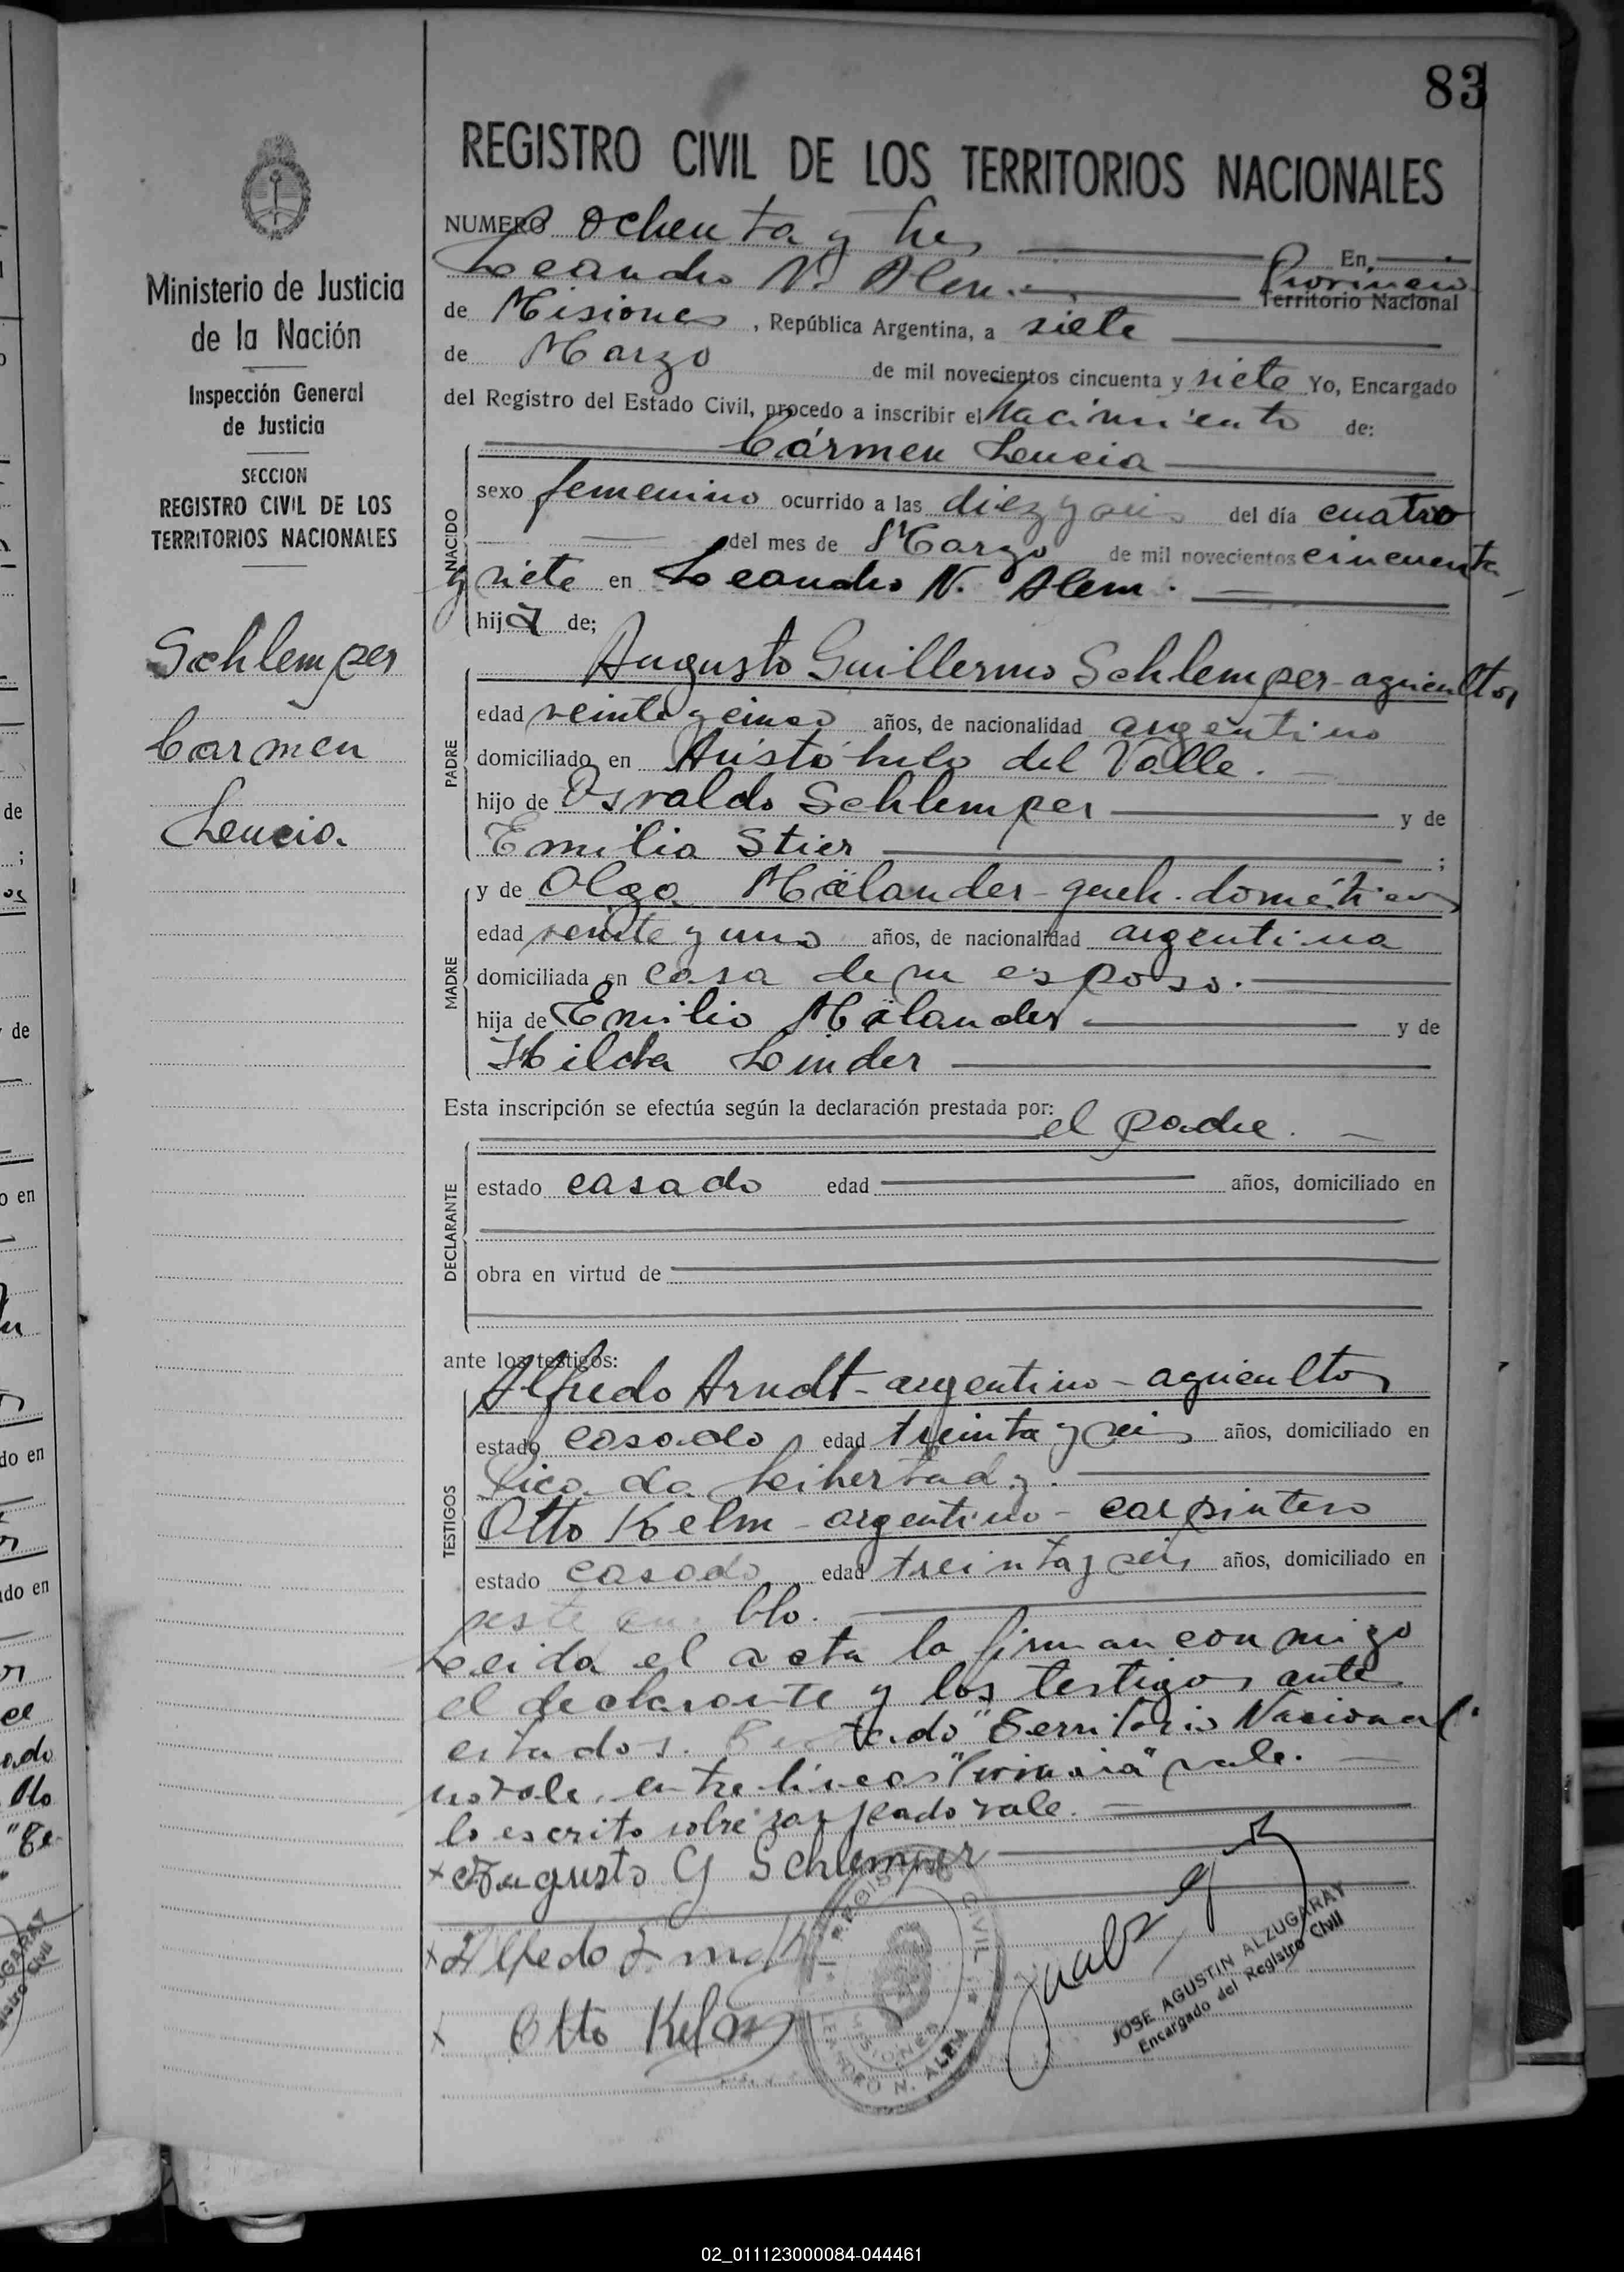 83
REGISTRO CIVIL DE LOS TERRITORIOS NACIONALES
Ministerio de Justicia
de la Nación
Inspección General
de Justicia
SECCION
REGISTRO CIVIL DE LOS
TERRITORIOS NACIONALES
Schlemper
Carmen
Leucia.
NUMERO ochenta y tres En
Leandro N. Alem. Provincia
Territorio Nacional
de Misiones, República Argentina, a siete
de Marzo de mil novecientos cincuenta y siete Yo, Encargado
del Registro del Estado Civil, procedo a inscribir el Nacimiento de:
Cármen Leucia
NACIDO
sexo femenino ocurrido a las diez y seis del día cuatro
del mes de Marzo de mil novecientos cincuenta
y siete en Leandro N. Alem.
hija de;
PADRE
Augusto Guillermo Schlemper - agricultor
edad veinte y cinco años, de nacionalidad argentino
domiciliado en Aristóbulo del Valle.
hijo de Osvaldo Schlemper y de
Emilia Stier ;
MADRE
y de Olga Mälander - queh. domésticos
edad veinte y uno años, de nacionalidad argentina
domiciliada en casa de su esposo.
hija de Emilio Mälander y de
Hilda Linder
Esta inscripción se efectúa según la declaración prestada por:
el padre.
DECLARANTE
estado casado edad años, domiciliado en
obra en virtud de
ante los testigos:
TESTIGOS
Alfredo Arndt - argentino - agricultor
estado casado edad treinta y seis años, domiciliado en
Picada Leibertad y.
Otto Kelm - argentino - carpintero
estado casado edad treinta y seis años, domiciliado en
este pueblo.
Leida el acta la firman conmigo
el declarante y los testigos ante
citados. Testado "Territorio Nacional"
no vale, entre lineas "Provincia" vale.
lo escrito sobre raspeado vale.
x Augusto G Schlemper
x Alfredo
x Otto Kelm
REGISTRO CIVIL
MISIONES
LEANDRO N. ALEM
JOSE AGUSTIN ALZUGARAY
Encargado del Registro Civil
02_011123000084-044461